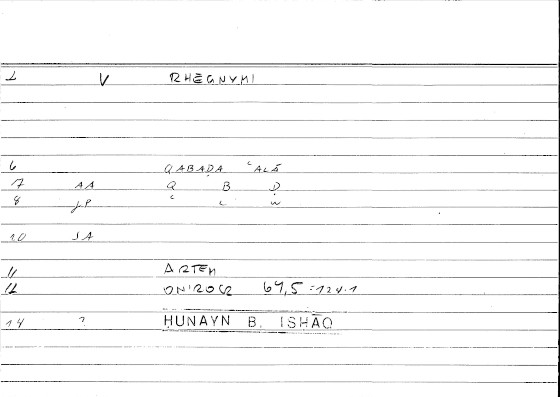 1 V RHĒGNYMI
6 QABAḌA ʿALĀ
7 AA Q B Ḍ
8 JP ʿ L W
10 SA
11 ARTEM
12 ONIROCR 67,5 = 124.1
14 ? HUNAYN B. ISHĀQ